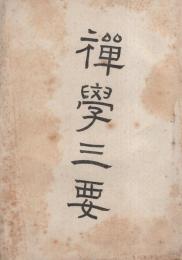 禪學三要